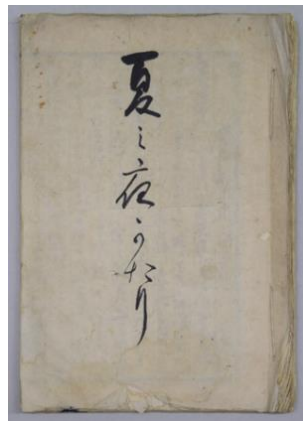 夏之夜かたり